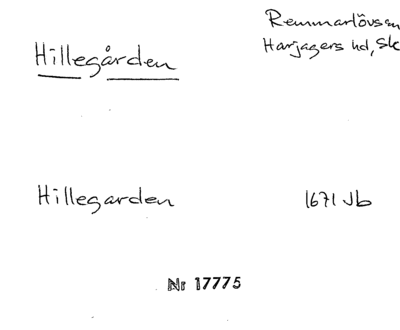 Remmarlövs sn
Hillegården
Harjagers hd, Sk
Hillegarden
1671 Jb
Nr 17775